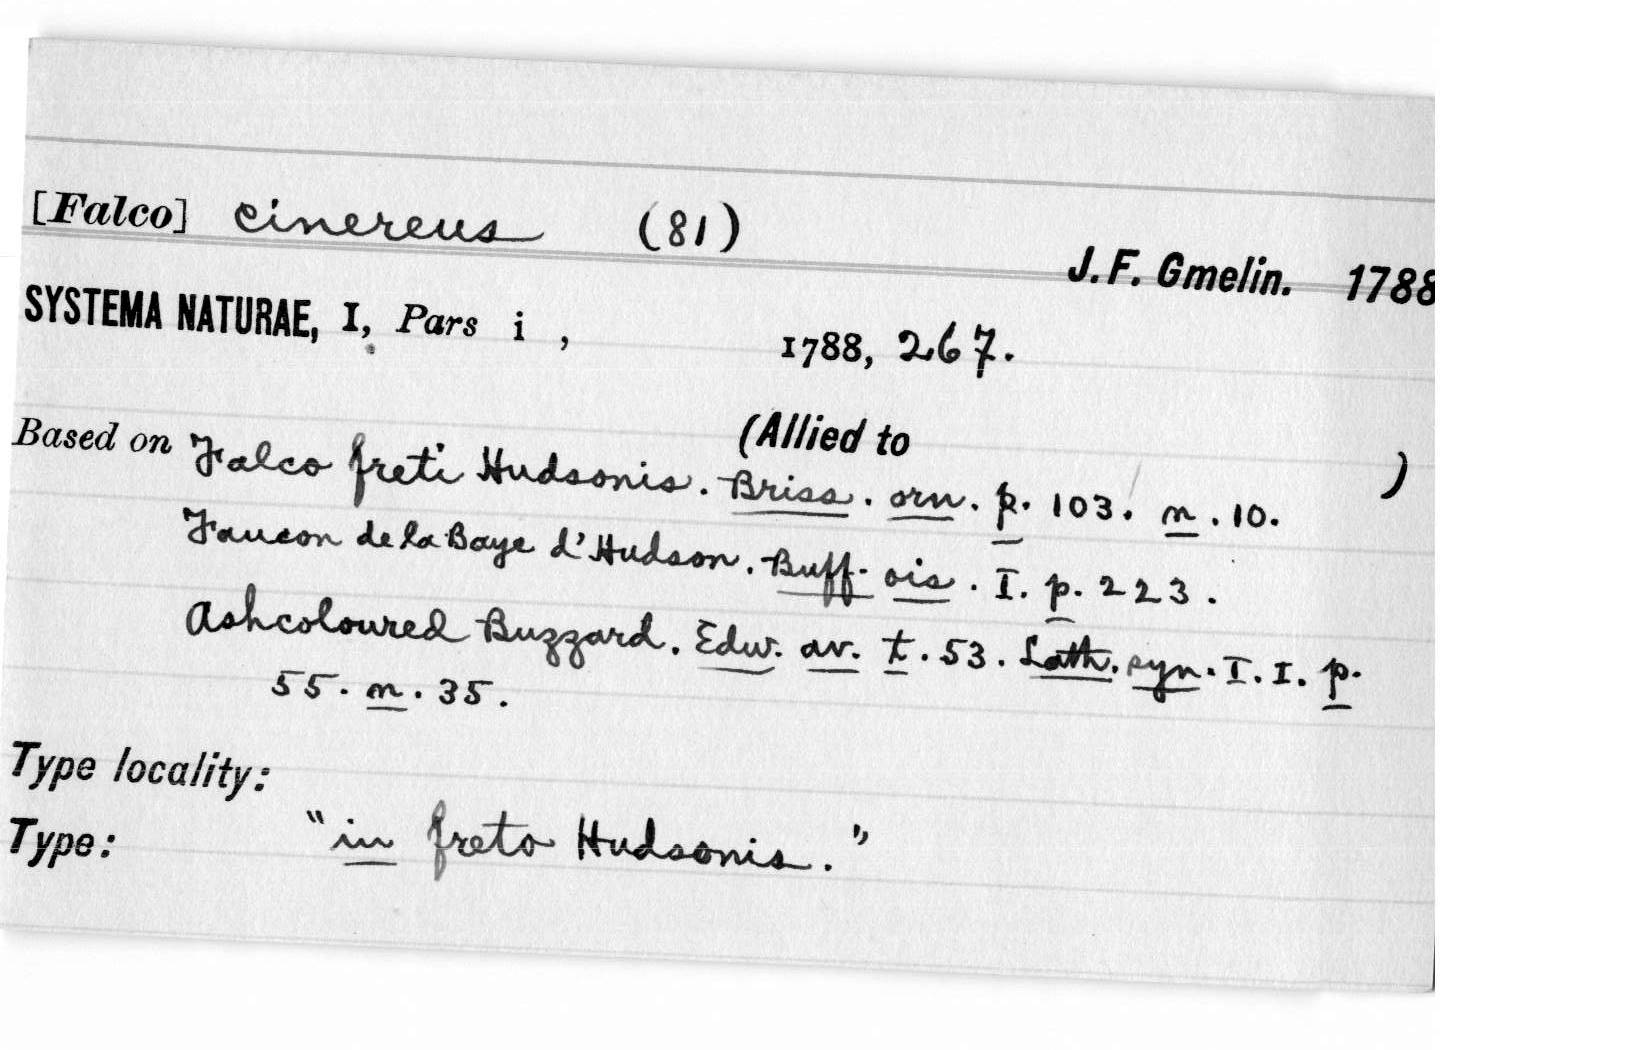 [Falco] cinereus (81)
J. F. Gmelin. 1788
SYSTEMA NATURAE, I, Pars i , 1788, 267.
(Allied to )
Based on Falco freti Hudsonis. Briss. orn. p. 103. n. 10.
Faucon de la Baye d'Hudson. Buff. ois. I. p. 223.
Ashcoloured Buzzard. Edw. av. t. 53. Lath. syn. I. I. p.
55. n. 35.
Type locality:
Type: "in freto Hudsonis."